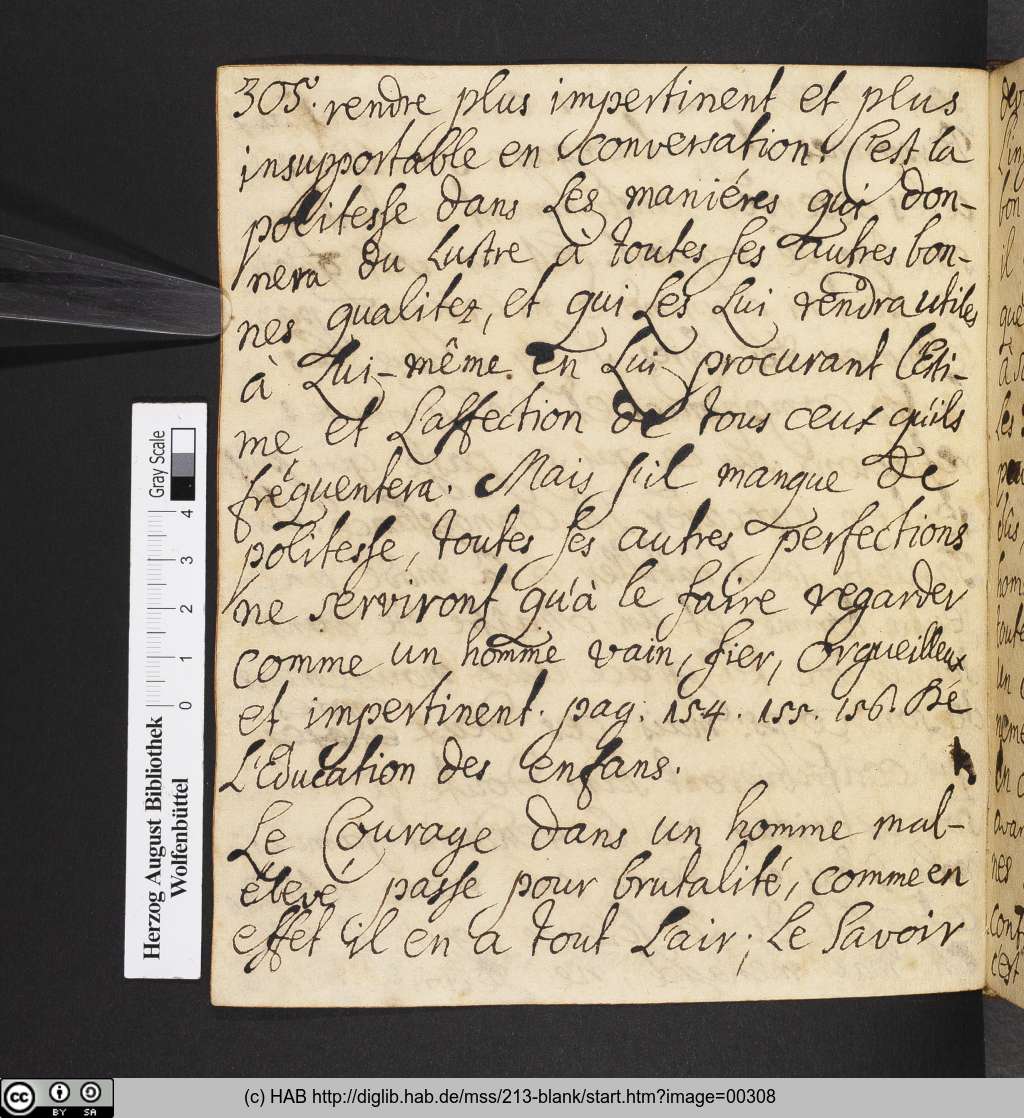 305. rendre plus impertinent et plus
insupportable en conversation. C'est la
politesse dans Les maniéres qui don-
nera du Lustre à toutes ses autres bon-
nes qualitez, et qui Les Lui rendra utiles
à Lui-même en Lui procurant l'Esti-
me et L'affection de tous ceux qu'ils
fréquentera. Mais s'il manque de
politesse, toutes ses autres perfections
ne serviront qu'à le faire regarder
comme un homme vain, fier, orgueilleux
et impertinent. pag. 154. 155. 156. De
L'Education des enfans.
Le Courage dans un homme mal-
élevé passe pour brutalité, comme en
effet il en a tout L'air; Le Savoir
Herzog August Bibliothek
Wolfenbüttel
0 1 2 3 4
Gray Scale
cc BY SA
(c) HAB http://diglib.hab.de/mss/213-blank/start.htm?image=00308